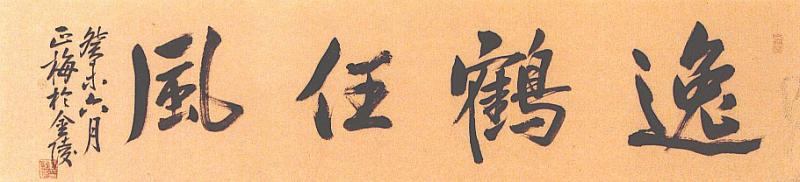 逸鶴任風
癸未六月
正梅於金陵